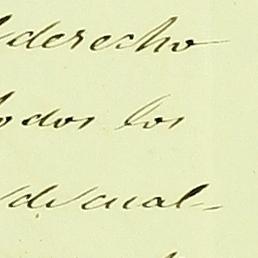 derecho
todos los
de cual-